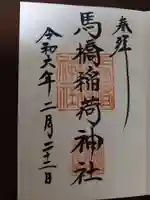 奉拝
馬橋稲荷神社
令和六年二月二十三日